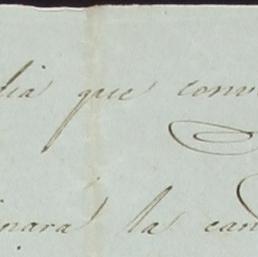 dia que conv
nará la can